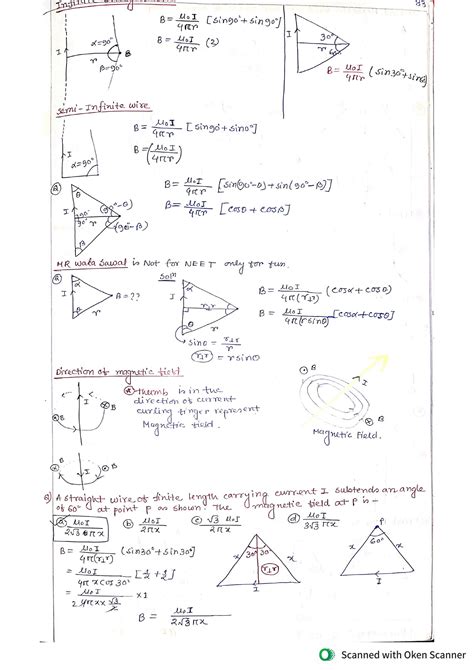 Infinite
83
α=90°
I
r
B
β=90°
B = μ₀I/4πr [sin90°+sin90°]
B = μ₀I/4πr (2)
I
30°
r
60
B = μ₀I/4πr (sin30°+sin6
Semi-Infinite wire
I
α=90°
B = μ₀I/4πr [sin90°+sin0°]
B = (μ₀I/4πr)
Q
θ
(90°-θ)
I
90°
r
(90-β)
β
B = μ₀I/4πr [sin(90°-θ)+sin(90°-β)]
B = μ₀I/4πr [cosθ + cosβ]
MR wala Sawal is Not for NEET only for fun.
Q
α
I
B = ??
θ
r
Soln
α
I
r⊥r
θ
r
sinθ = r⊥r/r
r⊥r = rsinθ
B = μ₀I/4π(r⊥r) (cosα+cosθ)
B = μ₀I/4π(rsinθ) [cosα+cosθ]
Direction of magnetic field
I
B
B
thumb is in the
direction of current
curling finger represent
Magnetic field.
B
I
B
Magnetic Field.
B
I
B
Q) A straight wire of finite length carrying current I subtends an angle
of 60° at point P as shown. The magnetic field at P is -
(a) μ₀I/2√3πx (b) μ₀I/2πx (c) √3μ₀I/2πx (d) μ₀I/3√3πx
B = μ₀I/4π(r⊥r) (sin30°+sin30°)
= μ₀I/4πxcos30° [1/2 + 1/2]
= μ₀I/4πx × √3/2 × 1
B = μ₀I/2√3πx
x
30° 30°
x
r⊥r
I
P
60°
x
x
I
Scanned with Oken Scanner